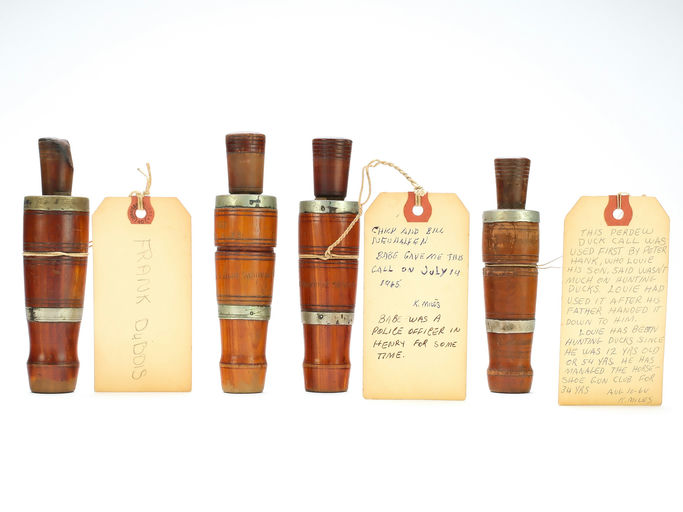 FRANK DUBOIS
CHICK AND BILL
BABE GAVE ME THIS
CALL ON JULY 14
1965
K. MILES
BABE WAS A
POLICE OFFICER IN
HENRY FOR SOME
TIME.
THIS PERDEW
DUCK CALL WAS
USED FIRST BY PETER
HANK, WHO LOUIE
HIS SON, SAID WASN'T
MUCH ON HUNTING
DUCKS LOUIE HAD
USED IT AFTER HIS
FATHER HANDED IT
DOWN TO HIM.
LOUIE HAS BEEN
HUNTING DUCKS SINCE
HE WAS 12 YRS OLD
OR 54 YRS. HE HAS
MANAGED THE HORSE-
SHOE GUN CLUB FOR
34 YRS AUG 10-60
K. MILES